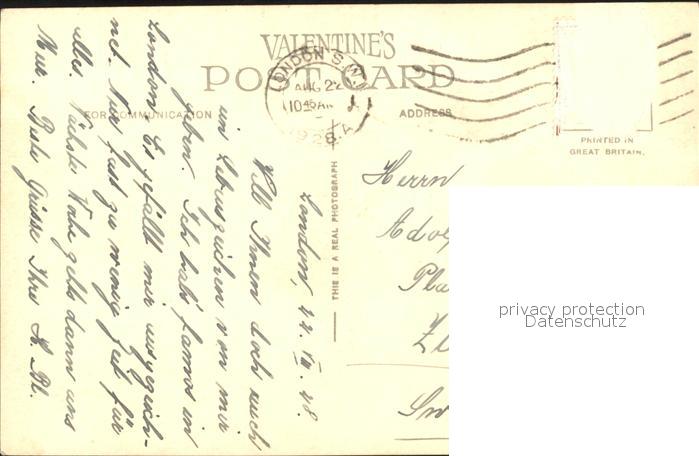 VALENTINE'S
POST CARD
FOR COMMUNICATION
ADDRESS
LONDON S.W.1
AUG 22
10 45 AM
1928
PRINTED IN
GREAT BRITAIN.
THIS IS A REAL PHOTOGRAPH
London, 22. VIII. 28.
Will Ihnen doch auch
ein Lebenszeichen von mir
geben. Ich hab's famos in
London. Es gefällt mir ausgezeich-
net. Nur fast zu wenig Zeit für
alles. Nächste Woche gehts dann ans
Meer. Beste Grüsse Ihre
Herrn
privacy protection
Datenschutz